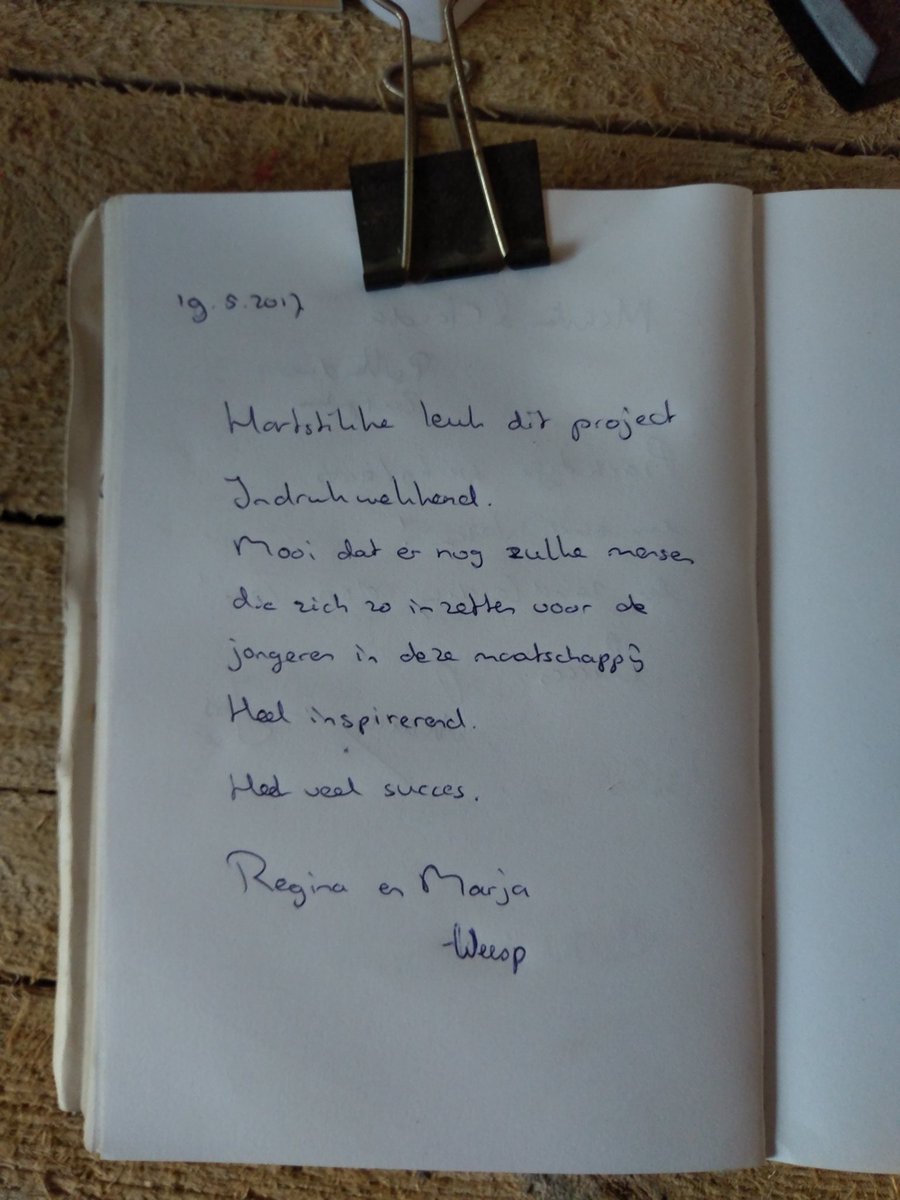 19.5.2017
Hartstikke leuk dit project
Indrukwekkend.
Mooi dat er nog zulke mensen
die zich zo inzetten voor de
jongeren in deze maatschappij
Heel inspirerend.
Heel veel succes.
Regina en Marja
-Weesp